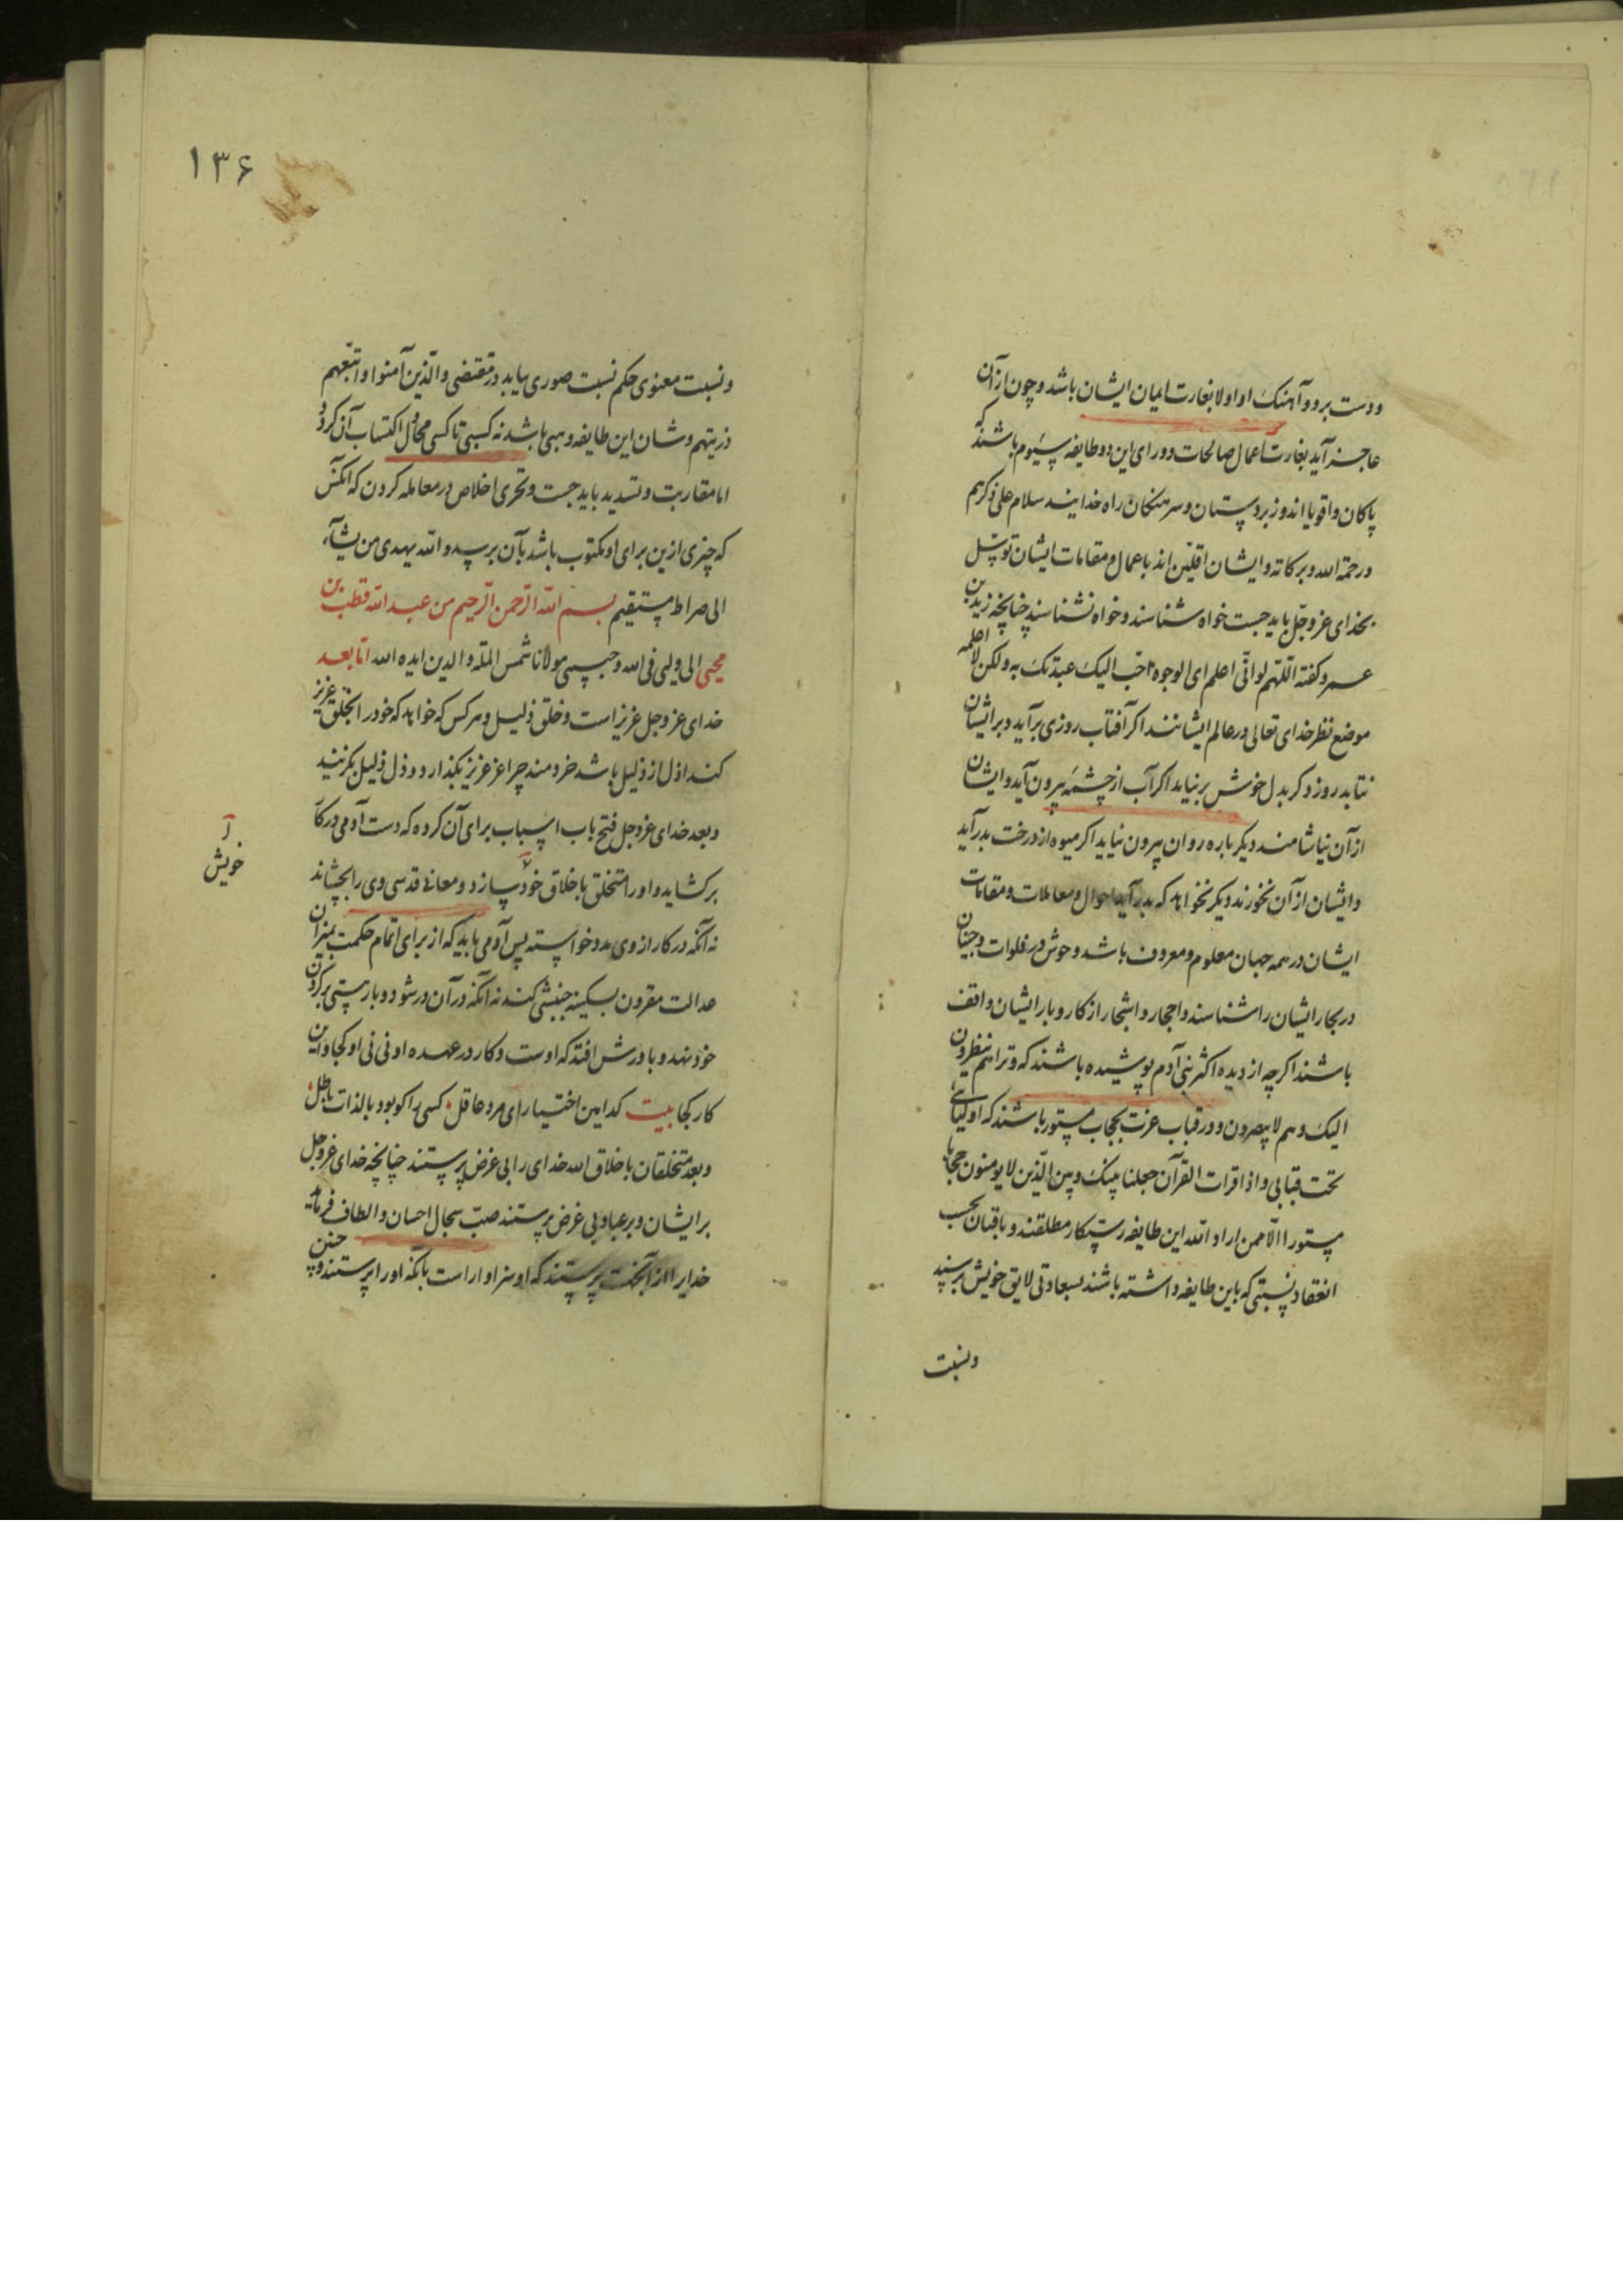 و دست برد و آهنک او اولا بغارت ایمان ایشان باشد و چون از آن
عاجز آید بغارت اعمال صالحات و ورای این دو طایفه سیوم باشند که
پاکان و اقویا اند و زبردستان و سرهنکان راه خدایند سلام علی ذکرهم
و رحمة الله و برکاته و ایشان اقلین اند باعمال و مقامات ایشان توسل
بخدای عز و جل باید جست خواه شناسند و خواه نشناسند چنانچه زید بن
عمرو کفته اللهم لو انی اعلم ای الوجوه احب الیک عبدتک به ولکن لا اعلمه
موضع نظر خدای تعالی در عالم ایشانند اکر آفتاب روزی برآید و بر ایشان
نتابد روز دکر بدل خوش برنیاید اکر آب از چشمه بیرون آید و ایشان
از آن نیاشامند دیکر باره روان بیرون نیاید اکر میوه از درخت بدرآید
و ایشان از آن نخورند دیکر نخواهد که بدرآید احوال و معاملات و مقامات
ایشان در همه جهان معلوم و معروف باشد وحوش در فلوات و حیتان
در بحار ایشان را شناسند و احجار و اشجار از کار و بار ایشان واقف
باشند اکرچه از دیده اکثر بنی آدم پوشیده باشند که و تراهم ینظرون
الیک و هم لا یبصرون و در قباب عزت بحجاب مستور باشند که اولیائی
تحت قبابی و اذا قرات القرآن جعلنا بینک و بین الذین لا یومنون حجابا
مستورا الا من اراد الله این طایفه رستکار مطلقند و باقیان بحسب
انعقاد نسبتی که باین طایفه داشته باشند بسعادتی لایق خویش برسند
و نسبت
۱۳۶
و نسبت معنوی حکم نسبت صوری یابد در مقتضی والذین آمنوا واتبعهم
ذریتهم و شان این طایفه وهبی باشد نه کسبی تا کسی محاول اکتساب آن کردد
اما مقاربت و تسدید باید جست و تحری اخلاص در معامله کردن که آنکس
که چیزی ازین برای او مکتوب باشد بآن برسد والله یهدی من یشآء
الی صراط مستقیم بسم الله الرحمن الرحیم من عبد الله قطب بن
محیی الی ولیی فی الله و حبیبی مولانا شمس الملة والدین ایده الله اما بعد
خدای عز و جل عزیز است و خلق ذلیل و هرکس که خواهد که خود را بخلق عزیز
کند اذل از ذلیل باشد خردمند چرا عز عزیز بکذارد و ذل ذلیل بکزیند
و بعد خدای عز و جل فتح باب اسباب برای آن کرده که دست آدمی در کار
برکشاید و او را متخلق باخلاق خود سازد و معانی قدسی وی را بچشاند
خویش
نه آنکه در کار از وی مدد خواسته پس آدمی باید که از برای اتمام حکمت بمیزان
عدالت مقرون بسکینه جنبشی کند نه آنکه در آن درشود و بار هستی برکردن
خود نهد و باورش افتد که اوست و کار در عهده او نی نی او کجا و این
کار کجا بیت کدامین اختیار ای مرد عاقل کسی را کو بود بالذات باطل
و بعد متخلقان باخلاق الله خدای را بی غرض پرستند چنانچه خدای عز و جل
بر ایشان و بر عبادِ بی غرض پرستند صب سجال احسان و الطاف فرماید
خدایرا از آنجهت پرستند که او سزاوار است بآنکه او را پرستند و چنین